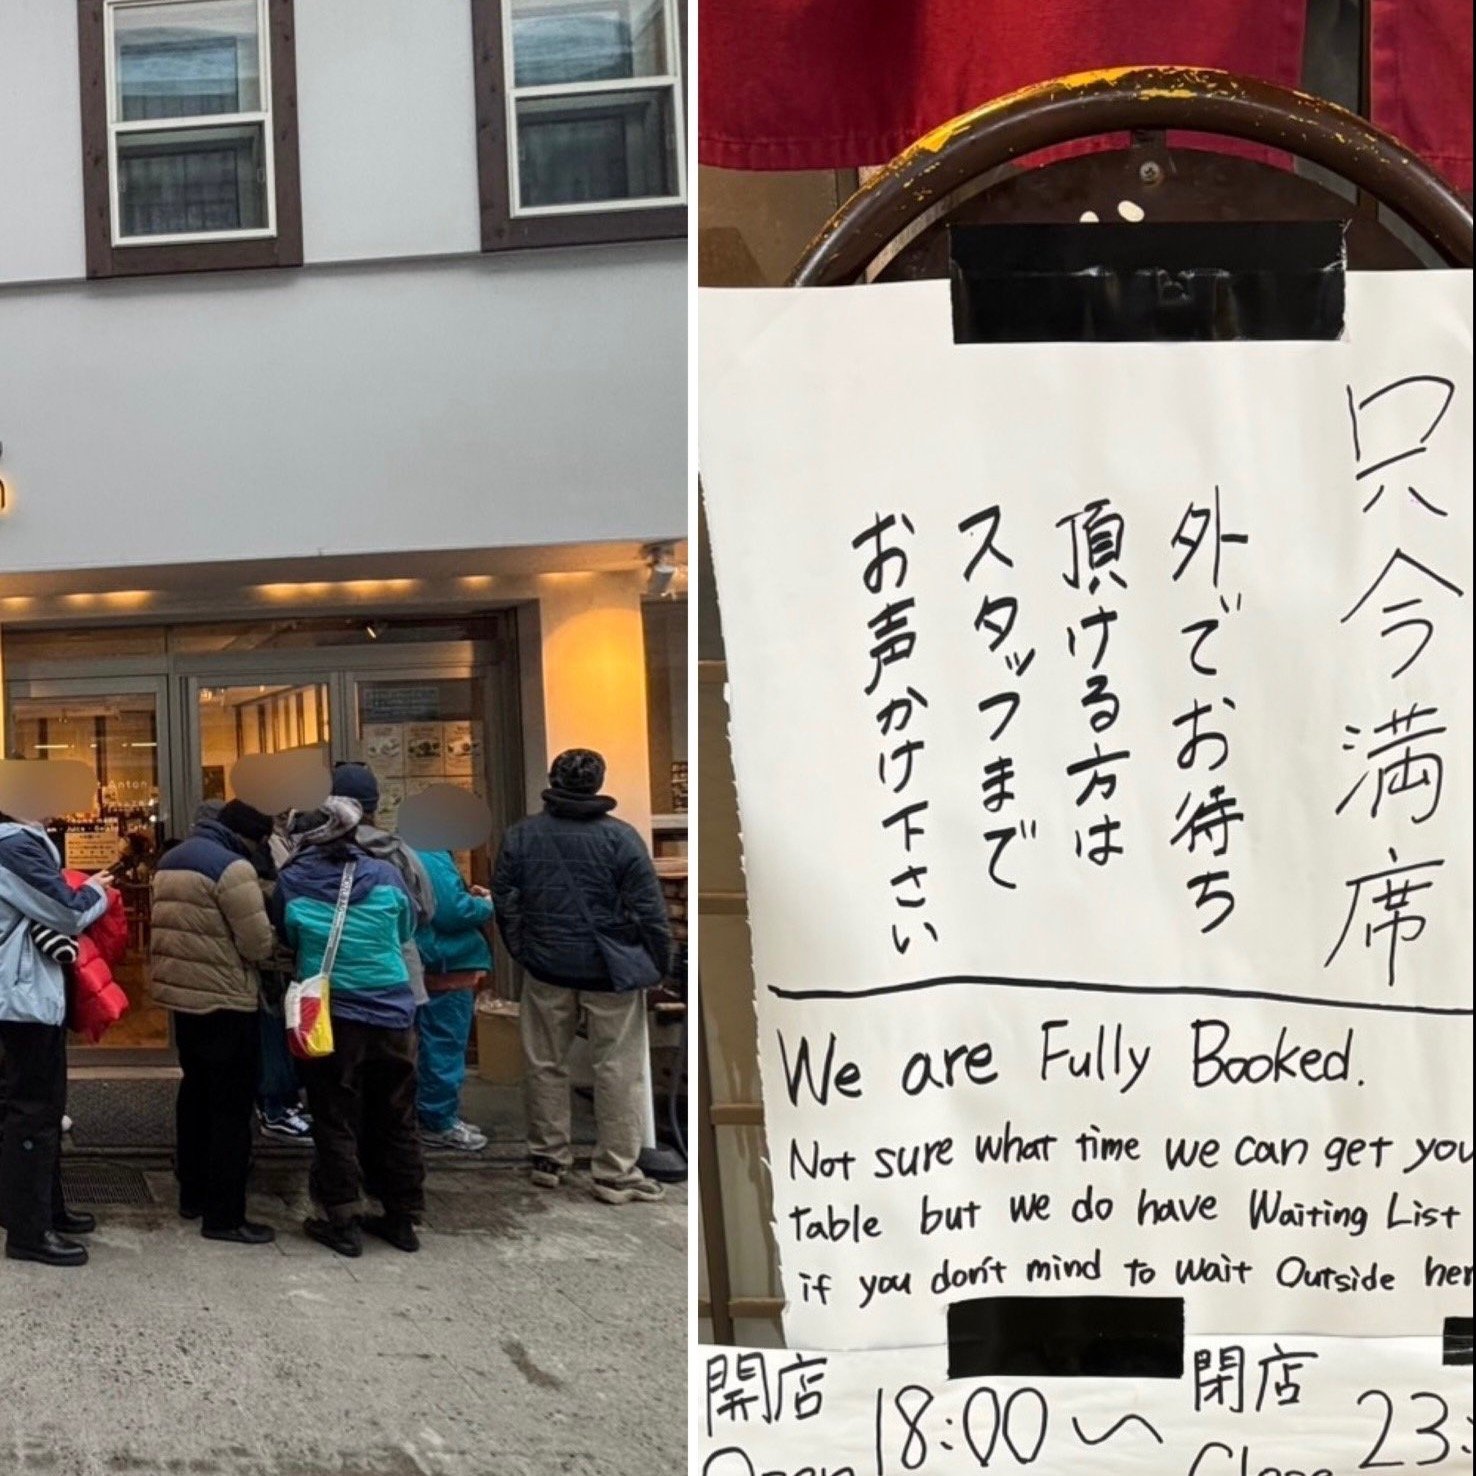 Anton
只今満席
外でお待ち
頂ける方は
スタッフまで
お声かけ下さい
We are Fully Booked.
Not sure what time we can get you
table but we do have Waiting List
if you don't mind to wait Outside her
開店 18:00〜 閉店 23:
Open Close